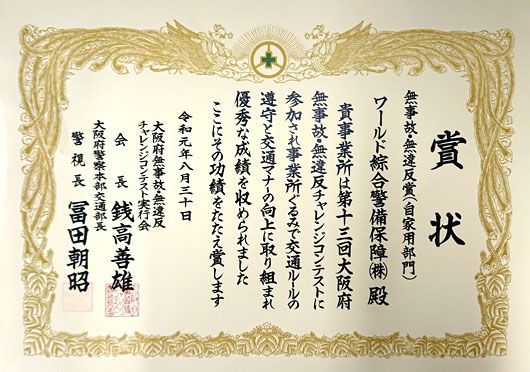 賞状
無事故・無違反賞(自家用部門)
ワールド綜合警備保障㈱ 殿
貴事業所は第十三回大阪府
無事故・無違反チャレンジコンテストに
参加され事業所ぐるみで交通ルールの
遵守と交通マナーの向上に取り組まれ
優秀な成績を収められました
ここにその功績をたたえ賞します
令和元年八月三十日
大阪府無事故・無違反
チャレンジコンテスト実行会
会長 銭高善雄
大阪府警察本部交通部長
警視長 冨田朝昭